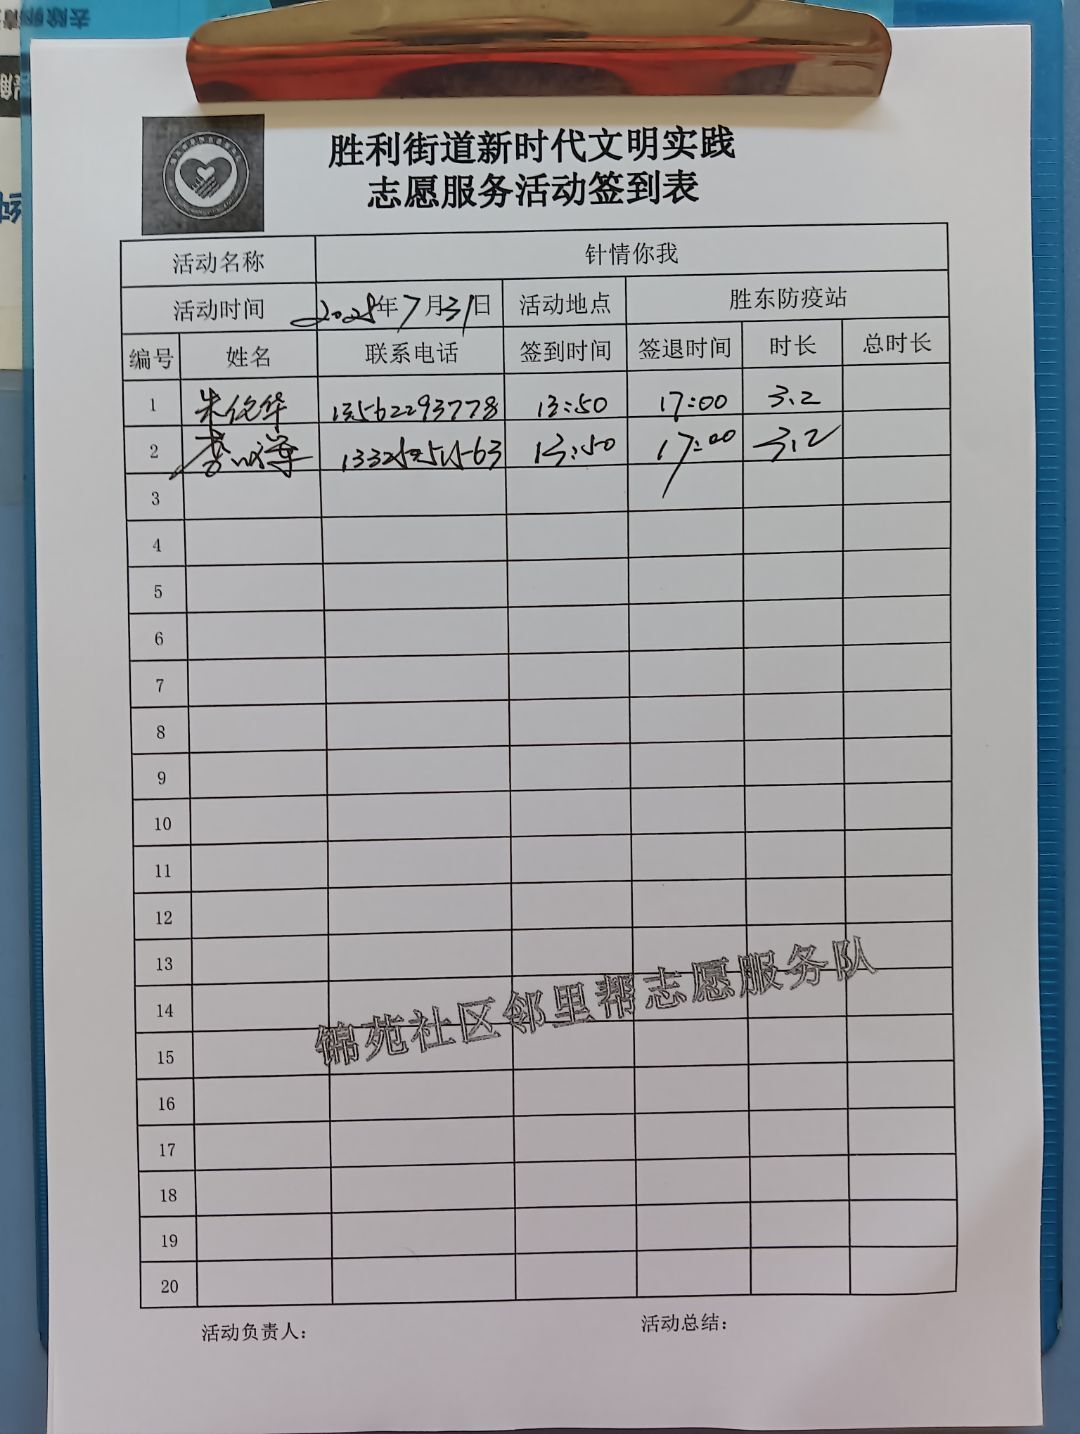 胜利街道新时代文明实践
志愿服务活动签到表
活动名称 针情你我
活动时间 2025年7月31日 活动地点 胜东防疫站
编号 姓名 联系电话 签到时间 签退时间 时长 总时长
1 朱 华 13562293778 13:50 17:00 3.2
2 李 13:50 17:00 3.2
3
4
5
6
7
8
9
10
11
12
13
14
15
16
17
18
19
20
锦苑社区邻里帮志愿服务队
活动负责人： 活动总结：